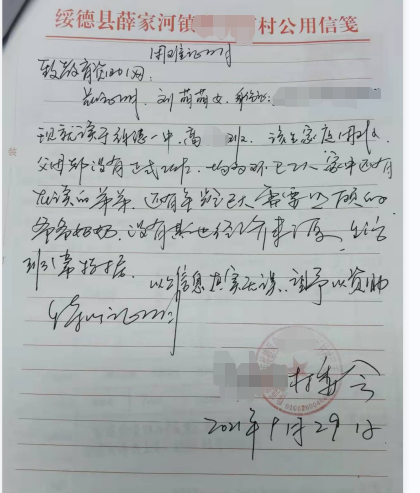 绥德县薛家河镇 村公用信笺
困难证明
致教育资助网:
兹证明,刘萌萌 女,身份证:
现就读于绥德一中,高 班。该生家庭困难
父母都没有正式工作,均为环卫工人,家中还有
在读的弟弟,还有年龄已大需要照顾的
爷爷奶奶,没有其他经济来源,生活
非常拮据。 以上信息真实无误,请予以资助
特此证明
村委会
2021年9月29日